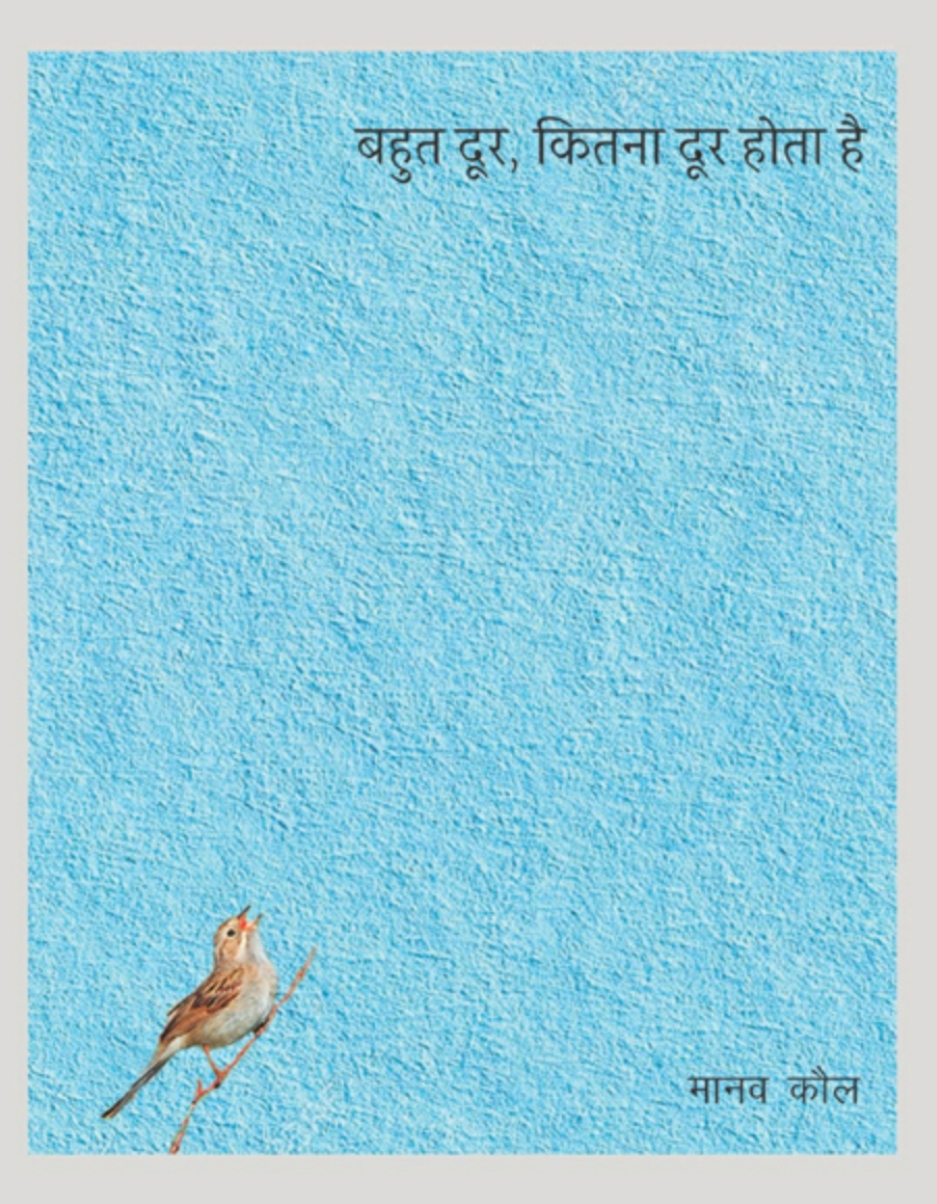 बहुत दूर, कितना दूर होता है
मानव कौल